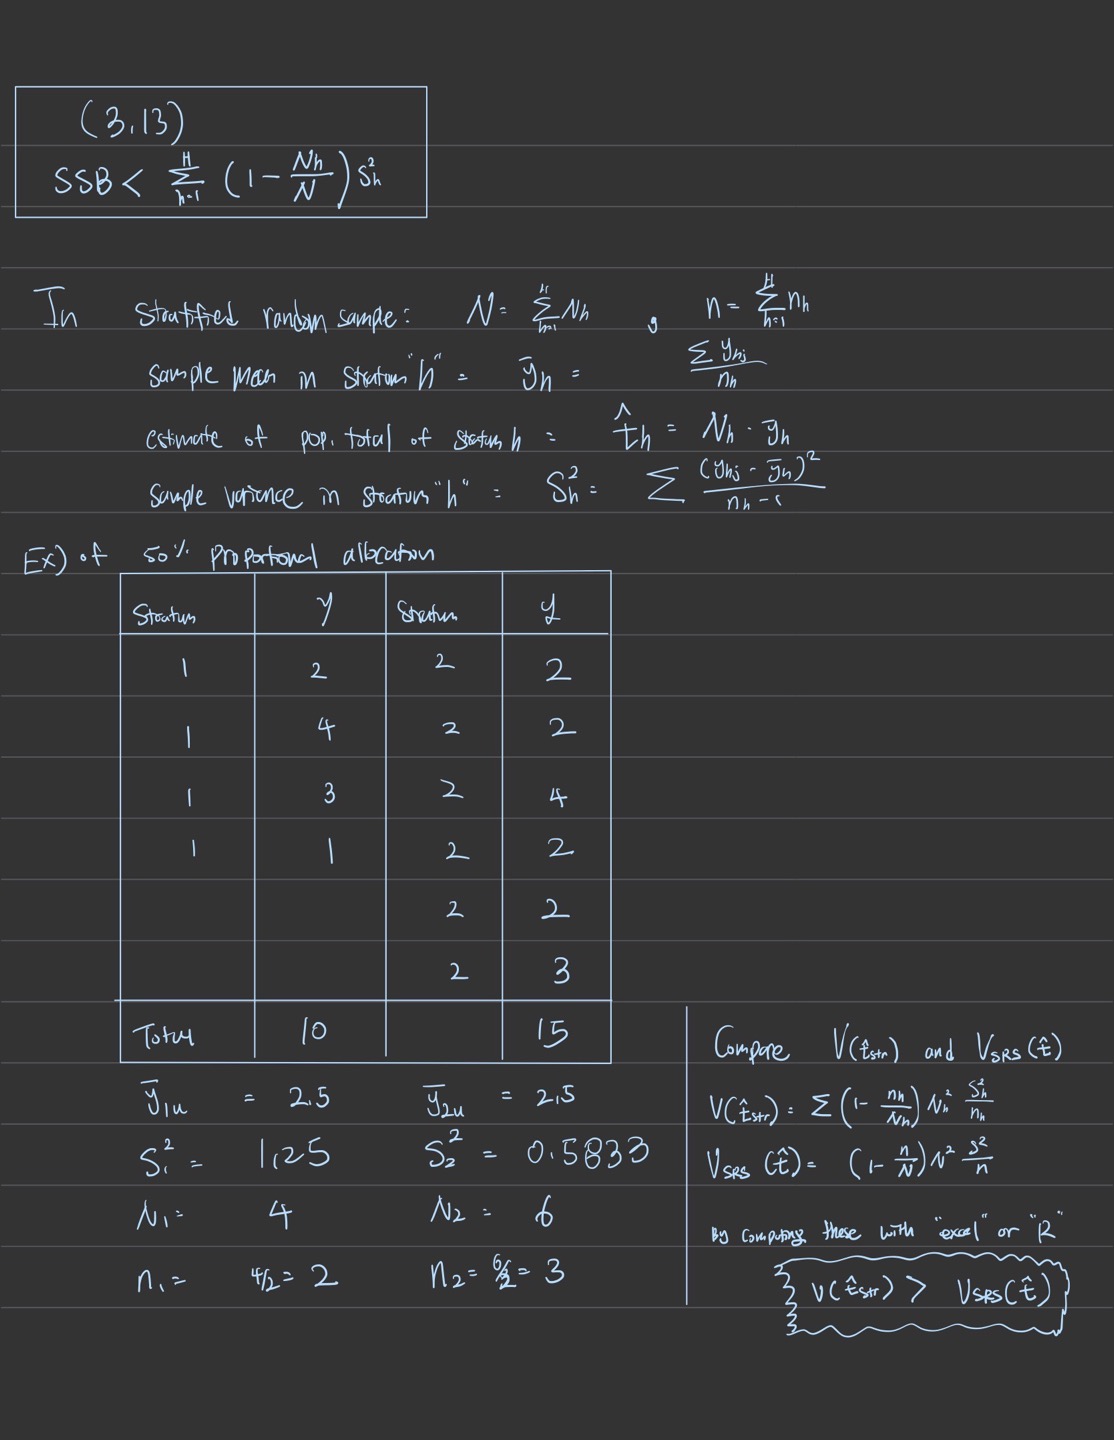 (3.13)
SSB < Σ_{h=1}^{H} (1 - Nh/N) S²h
In Stratified random sample: N = Σ_{h=1}^{H} Nh , n = Σ_{h=1}^{H} nh
Sample mean in Stratum "h" = ȳh = Σ yhj / nh
estimate of pop. total of stratum h = t̂h = Nh · ȳh
Sample variance in stratum "h" = S²h = Σ (yhj - ȳh)² / nh - 1
Ex) of 50% proportional allocation
Stratum y Stratum y
1 2 2 2
1 4 2 2
1 3 2 4
1 1 2 2
2 2
2 3
Total 10 15
ȳ1u = 2.5 ȳ2u = 2.5
S1² = 1.25 S2² = 0.5833
N1 = 4 N2 = 6
n1 = 4/2 = 2 n2 = 6/2 = 3
Compare V(t̂str) and VSRS(t̂)
V(t̂str) = Σ (1 - nh/Nh) Nh² S²h/nh
VSRS(t̂) = (1 - n/N) N² S²/n
By computing these with "excel" or "R"
V(t̂str) > VSRS(t̂)